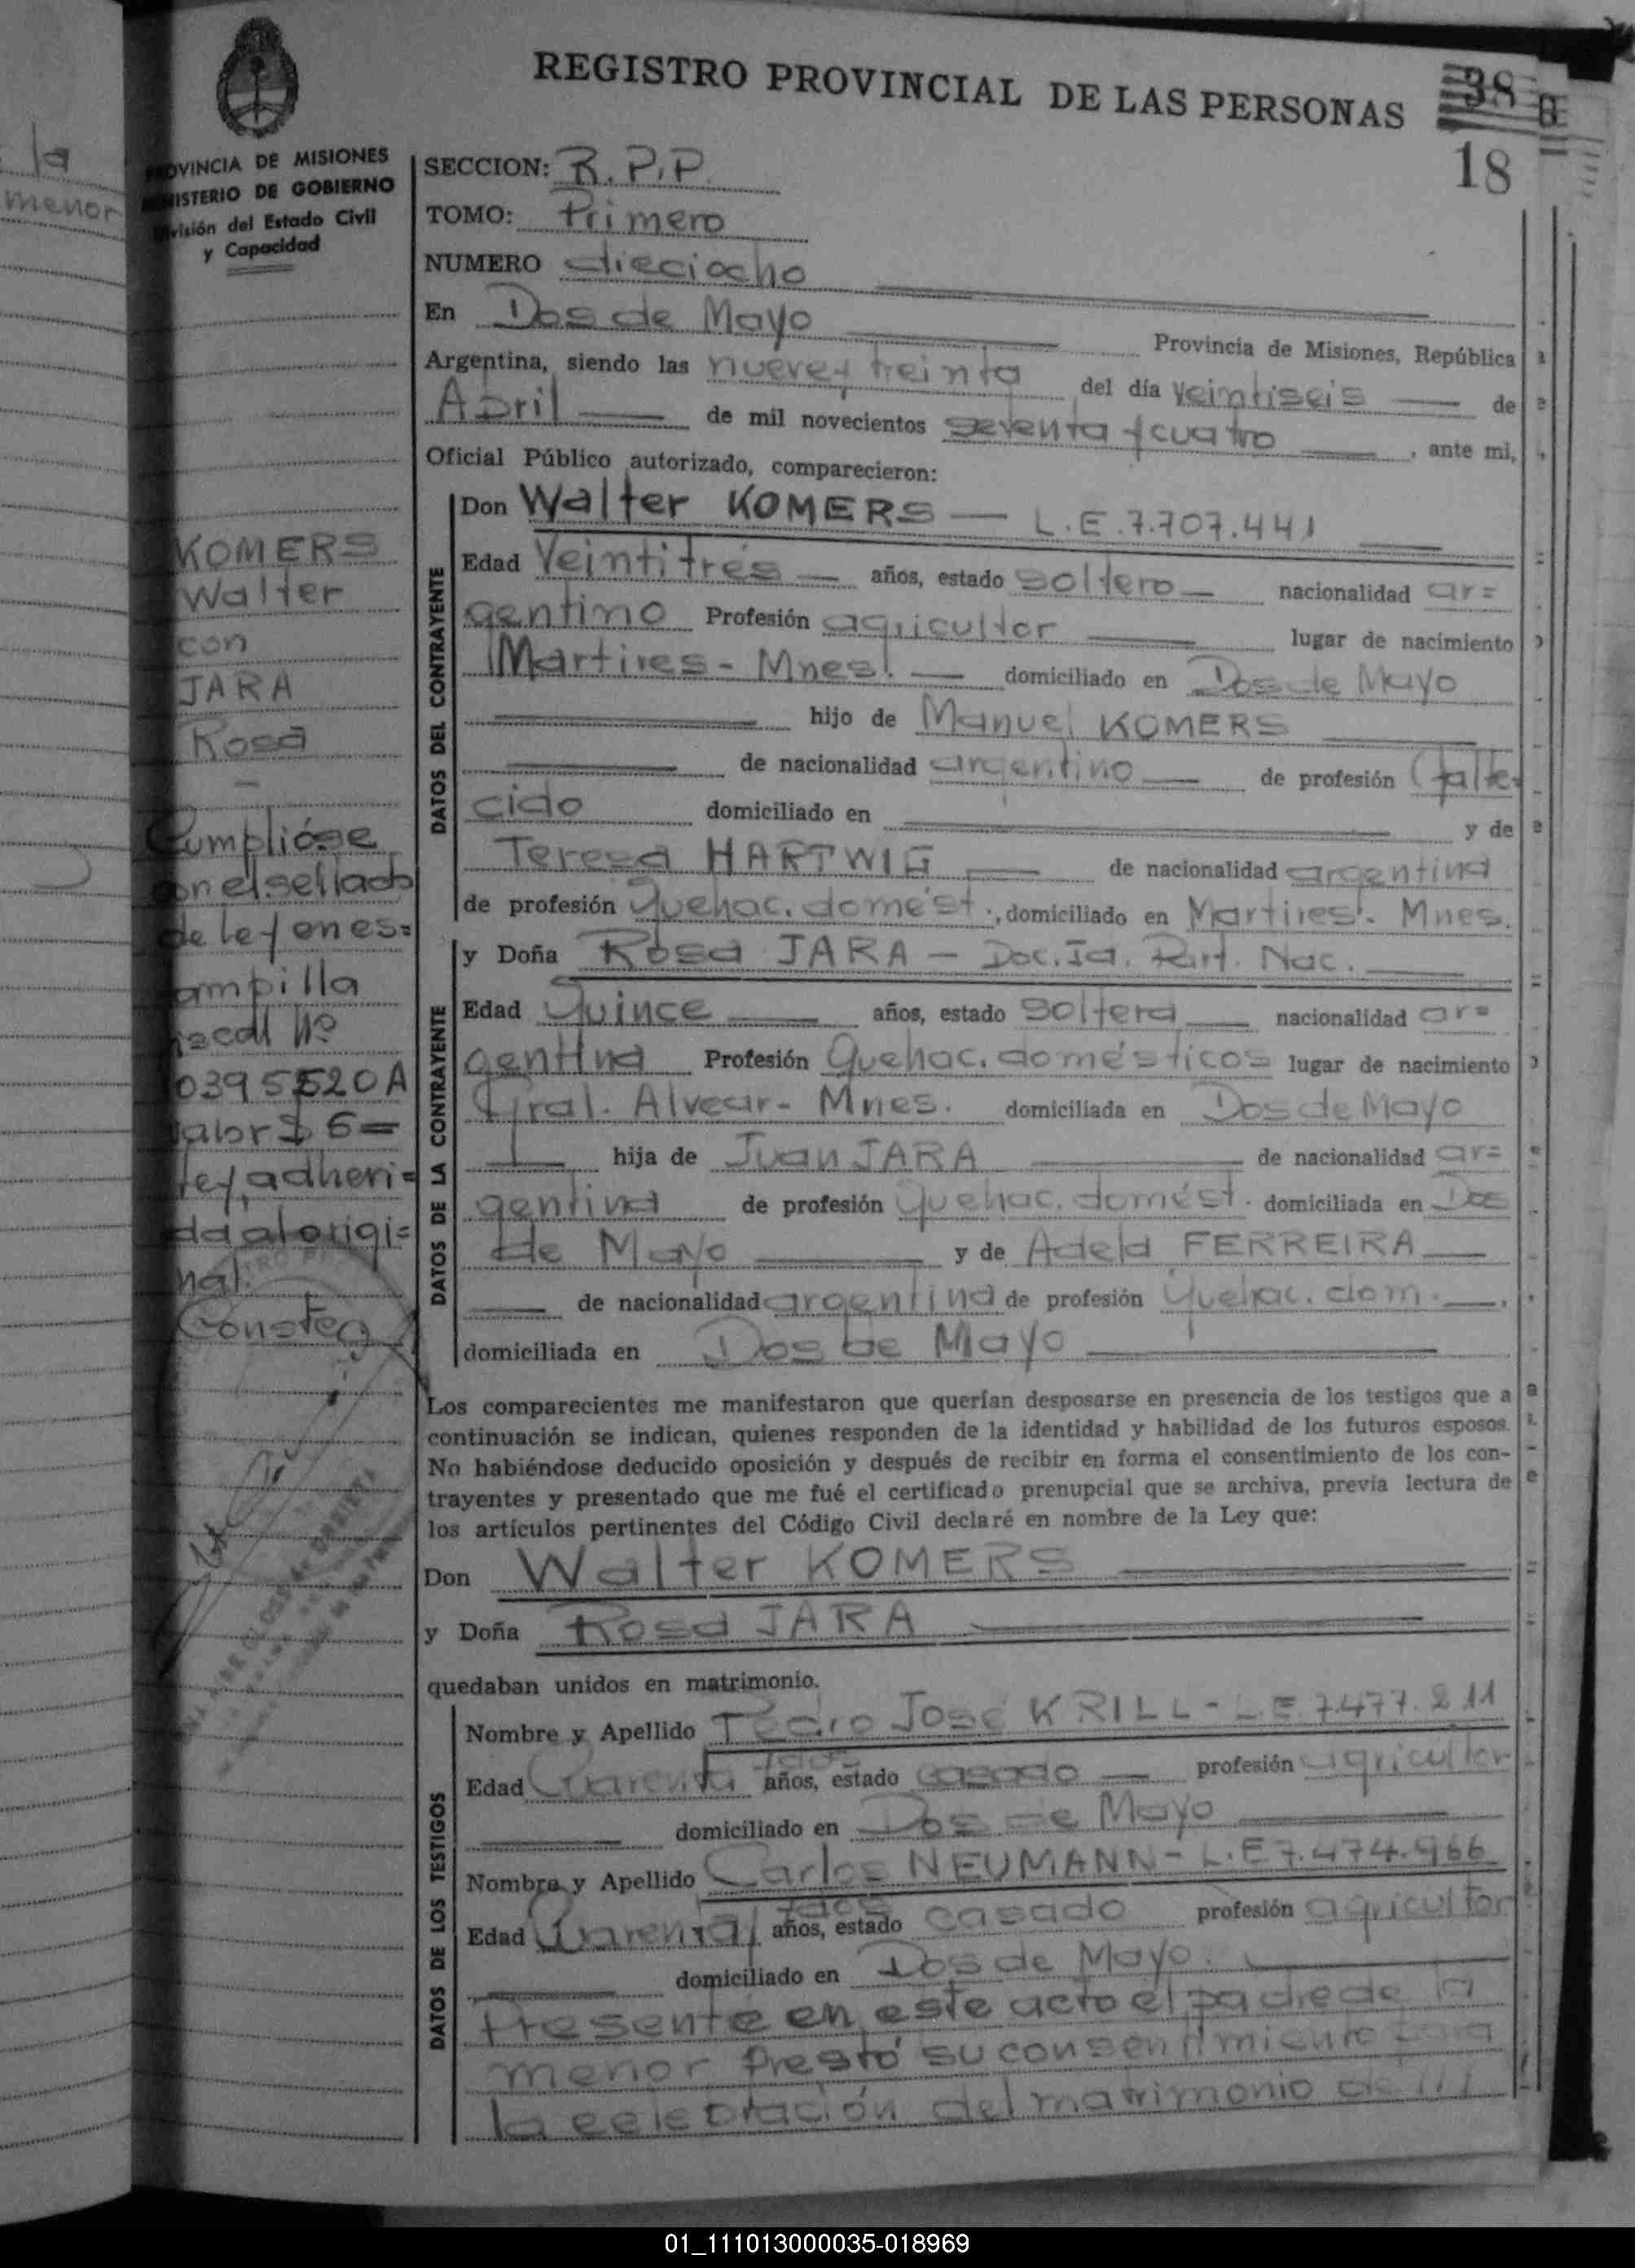 la
menor
REGISTRO PROVINCIAL DE LAS PERSONAS
38
18
PROVINCIA DE MISIONES
MINISTERIO DE GOBIERNO
División del Estado Civil
y Capacidad
SECCION: R.P.P.
TOMO: Primero
NUMERO dieciocho
En Dos de Mayo Provincia de Misiones, República
Argentina, siendo las nueve y treinta del día veintiseis de
Abril de mil novecientos setenta y cuatro, ante mi,
Oficial Público autorizado, comparecieron:
KOMERS
Walter
con
JARA
Rosa
Cumplióse
con el sellado
de ley en es=
tampilla
fiscal Nº
0395520A
valor $ 6=
ley, adheri=
da al origi=
nal.
Conste
DATOS DEL CONTRAYENTE
Don Walter KOMERS — L.E. 7.707.441
Edad Veintitrés años, estado soltero nacionalidad ar=
gentino Profesión agricultor lugar de nacimiento
Martires - Mnes. domiciliado en Dos de Mayo
hijo de Manuel KOMERS
de nacionalidad argentino de profesión (falle-
cido domiciliado en y de
Teresa HARTWIG de nacionalidad argentina
de profesión Quehac. domést., domiciliado en Martires - Mnes.
DATOS DE LA CONTRAYENTE
y Doña Rosa JARA — Doc. Id. Part. Nac.
Edad Quince años, estado soltera nacionalidad ar=
gentina Profesión Quehac. domésticos lugar de nacimiento
Gral. Alvear - Mnes. domiciliada en Dos de Mayo
hija de Juan JARA de nacionalidad ar=
gentina de profesión Quehac. domést. domiciliada en Dos
de Mayo y de Adela FERREIRA
de nacionalidad argentina de profesión Quehac. dom.,
domiciliada en Dos de Mayo
Los comparecientes me manifestaron que querían desposarse en presencia de los testigos que a
continuación se indican, quienes responden de la identidad y habilidad de los futuros esposos.
No habiéndose deducido oposición y después de recibir en forma el consentimiento de los con-
trayentes y presentado que me fué el certificado prenupcial que se archiva, previa lectura de
los artículos pertinentes del Código Civil declaré en nombre de la Ley que:
Don Walter KOMERS
y Doña Rosa JARA
quedaban unidos en matrimonio.
DATOS DE LOS TESTIGOS
Nombre y Apellido Pedro José KRILL - L.E. 7.477.211
Edad Cuarenta años, estado casado profesión agricultor
domiciliado en Dos de Mayo
Nombre y Apellido Carlos NEUMANN - L.E 7.474.966
Edad Cuarenta años, estado casado profesión agricultor
domiciliado en Dos de Mayo.
Presente en este acto el padre de la
menor prestó su consentimiento para
la celebración del matrimonio de
01_111013000035-018969